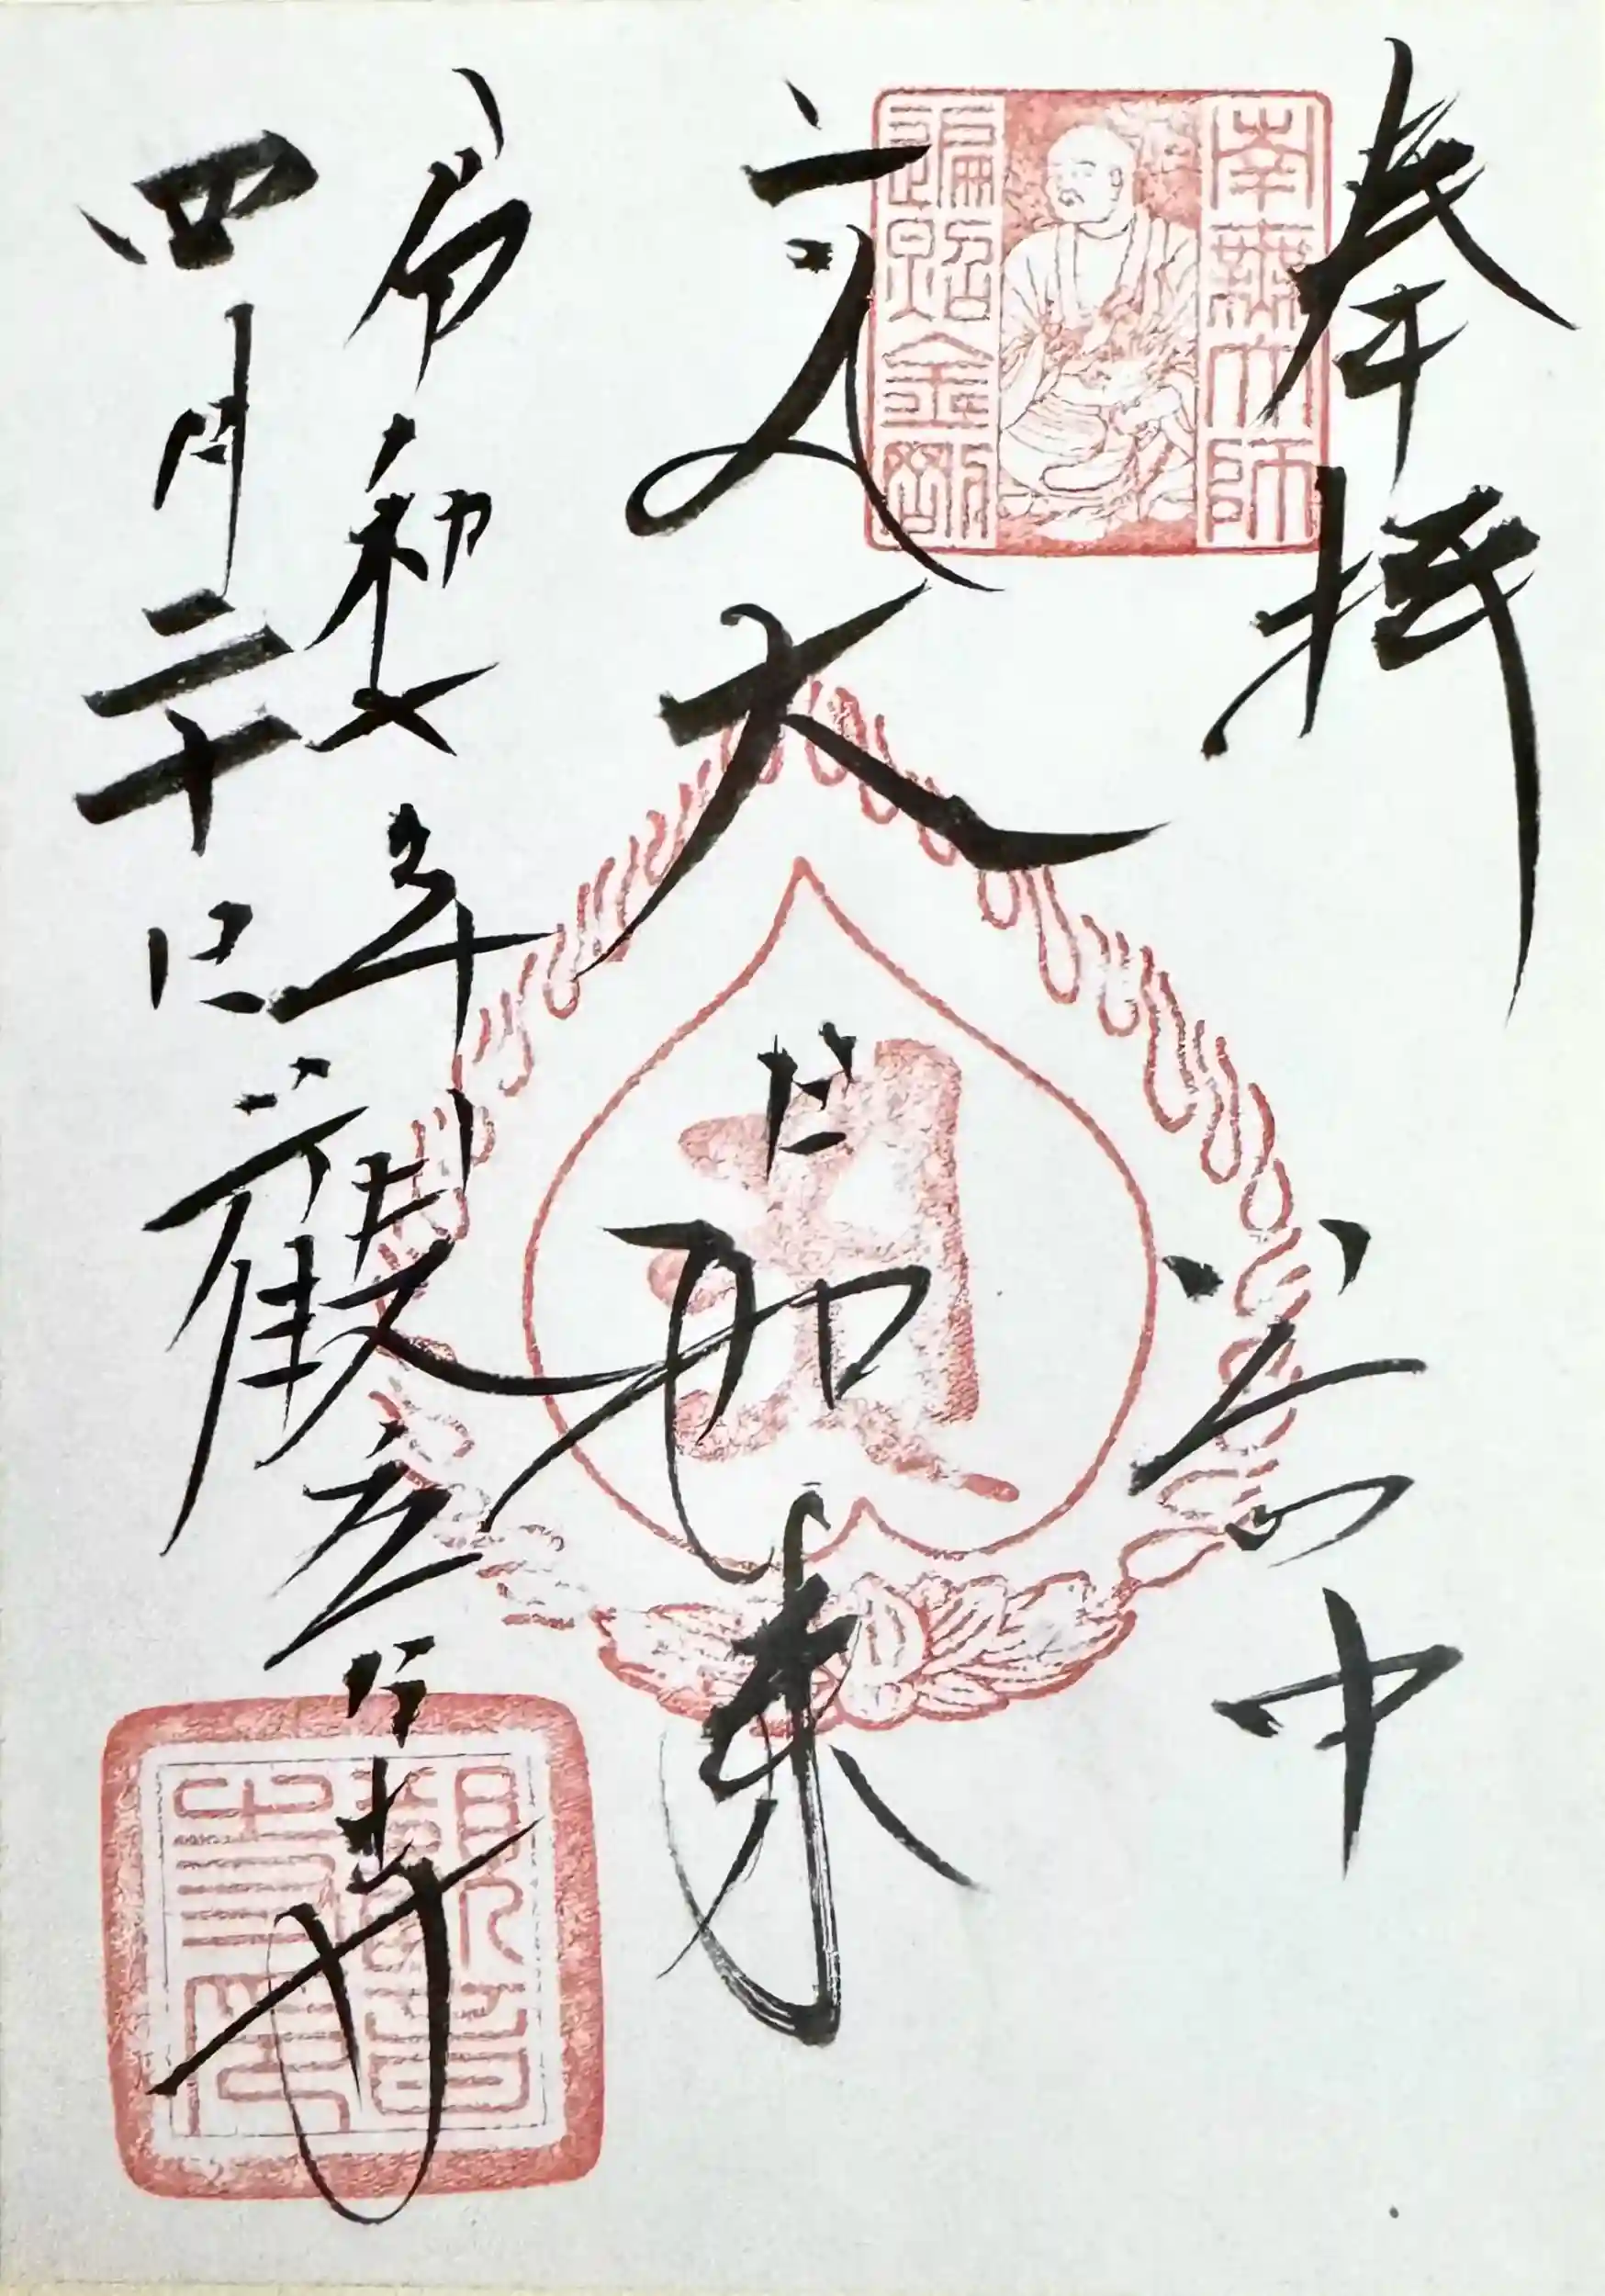 奉拝
大日如来
令和
年
四月二十日
觀音寺
南無大師
遍照金剛
觀音
寺印